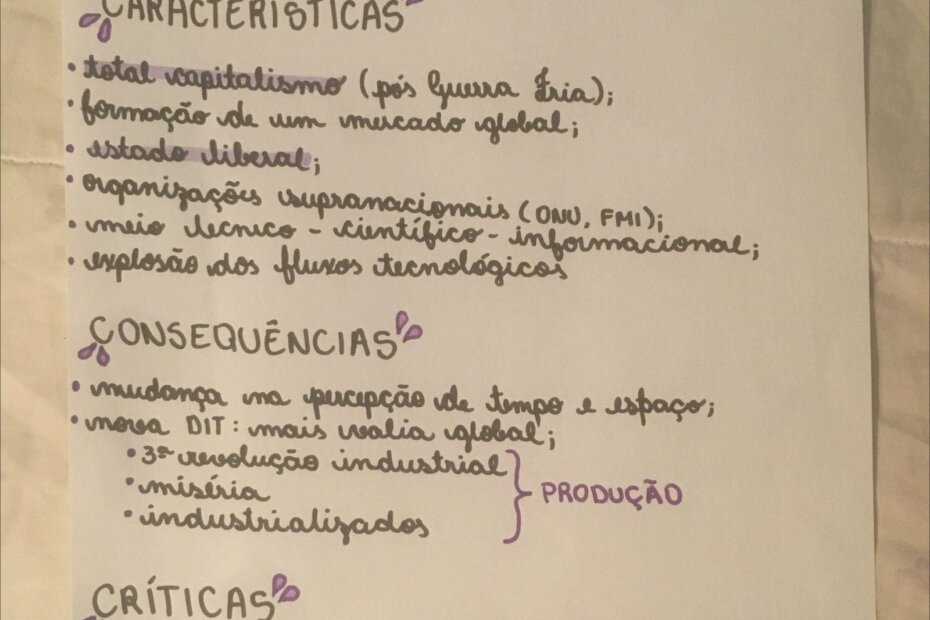 CARACTERÍSTICAS
• total capitalismo (pós Guerra Fria);
• formação de um mercado global;
• estado liberal;
• organizações supranacionais (ONU, FMI);
• meio técnico - científico - informacional;
• explosão dos fluxos tecnológicos
CONSEQUÊNCIAS
• mudança na percepção de tempo e espaço;
• nova DIT: mais valia global;
• 3ª revolução industrial
• miséria
• industrializados
PRODUÇÃO
CRÍTICAS